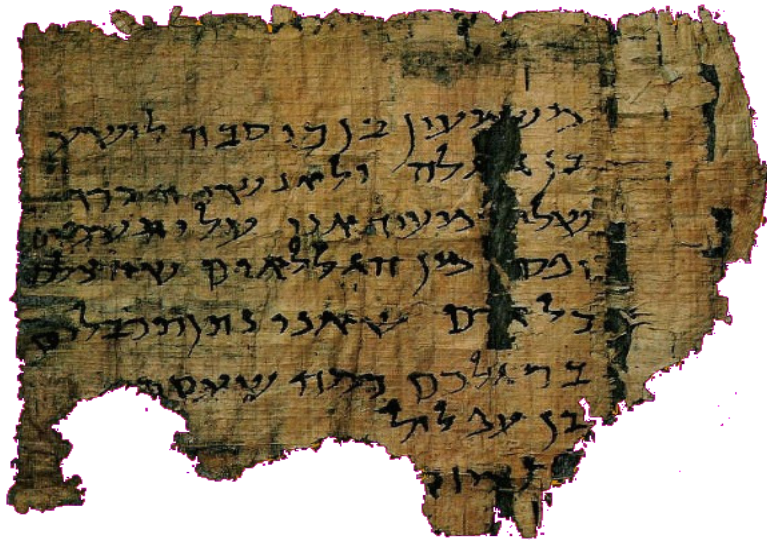 משמעון בן כוסבה לישע
בן גלגלה ולאנשי הכרך
שלום מעיד אני עלי תשמים
יפס מן הגללאים שהצלכם
כל אדם שאני נותן תכבלים
ברגלכם כמה שעסתי
בן עפלול